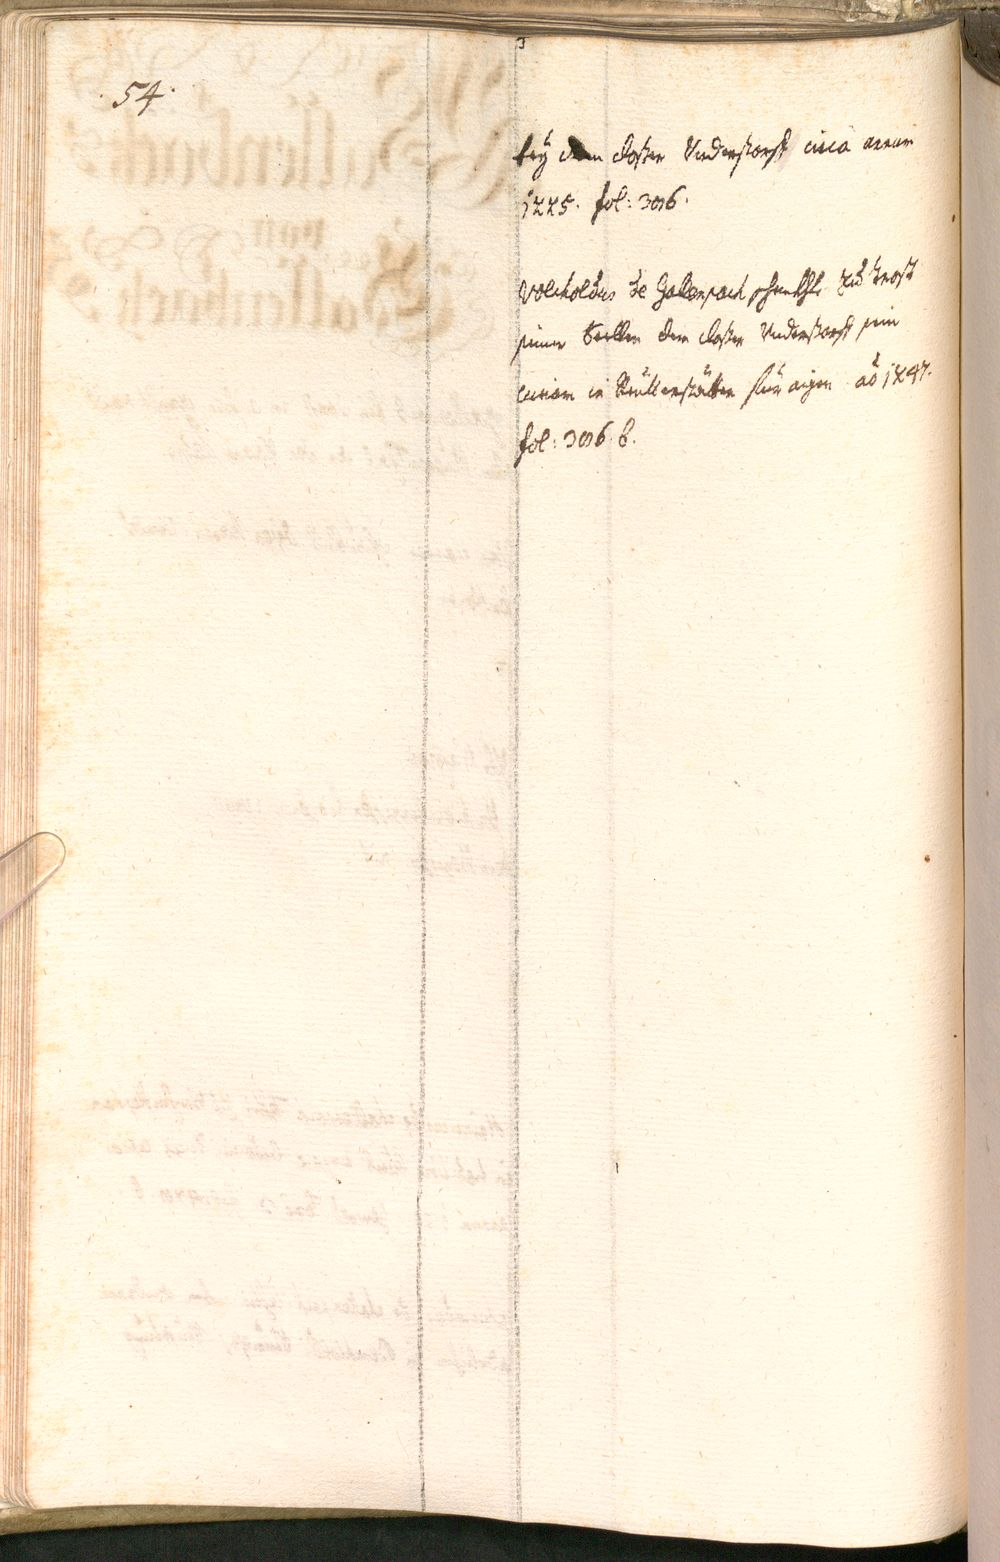 54.
beÿ dem closter Understorff circa annum
1225. fol: 306.
Volckoldus de Gallenpach schenkht zu trost
seiner Seellen dem closter Understorff sein
curiam in für aigen ao 1247.
fol: 306 b.